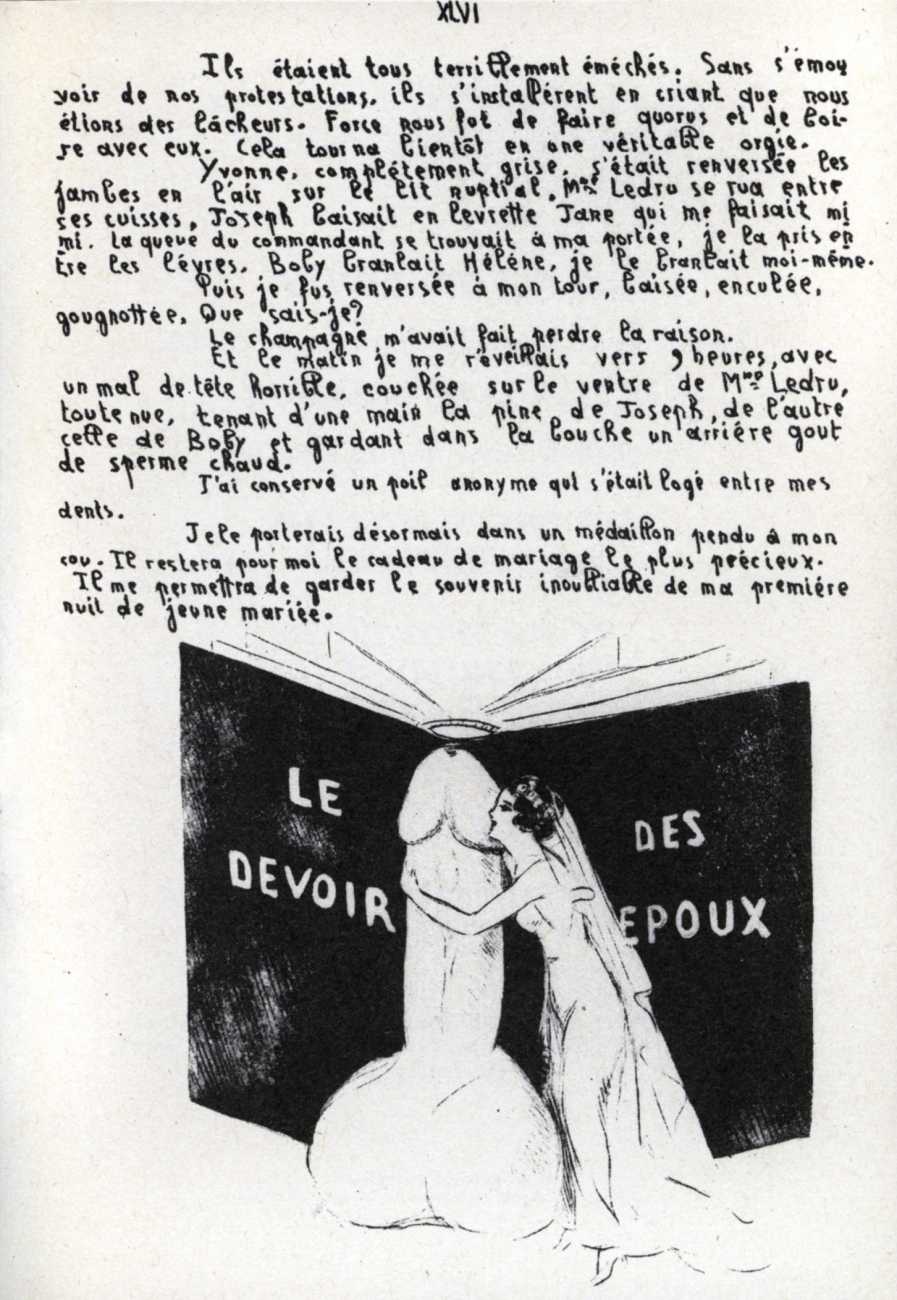 XLVI
Ils étaient tous terriblement éméchés. Sans s'émou
voir de nos protestations, ils s'installèrent en criant que nous
étions des lâcheurs. Force nous fut de faire quorus et de boi-
re avec eux. Cela tourna bientôt en une véritable orgie.
Yvonne, complétement grise, s'était renversée les
jambes en l'air sur le lit nuptial. Mme Ledru se rua entre
ses cuisses, Joseph baisait en levrette Jane qui me faisait mi
mi. la queue du commandant se trouvait à ma portée, je la pris en
tre les lèvres. Boby branlait Hélène, je le branlait moi-même.
Puis je fus renversée à mon tour, baisée, enculée,
gougnottée. Que sais-je?
Le champagne m'avait fait perdre la raison.
Et le matin je me réveillais vers 9 heures, avec
un mal de tête horrible, couchée sur le ventre de Mme Ledru,
toute nue, tenant d'une main la pine de Joseph, de l'autre
celle de Boby et gardant dans la bouche un arrière gout
de sperme chaud.
J'ai conservé un poil anonyme qui s'était logé entre mes
dents.
Je le porterais désormais dans un médaillon pendu à mon
cou. Il restera pour moi le cadeau de mariage le plus précieux.
Il me permettra de garder le souvenir inoubliable de ma première
nuit de jeune mariée.
LE
DEVOIR
DES
EPOUX